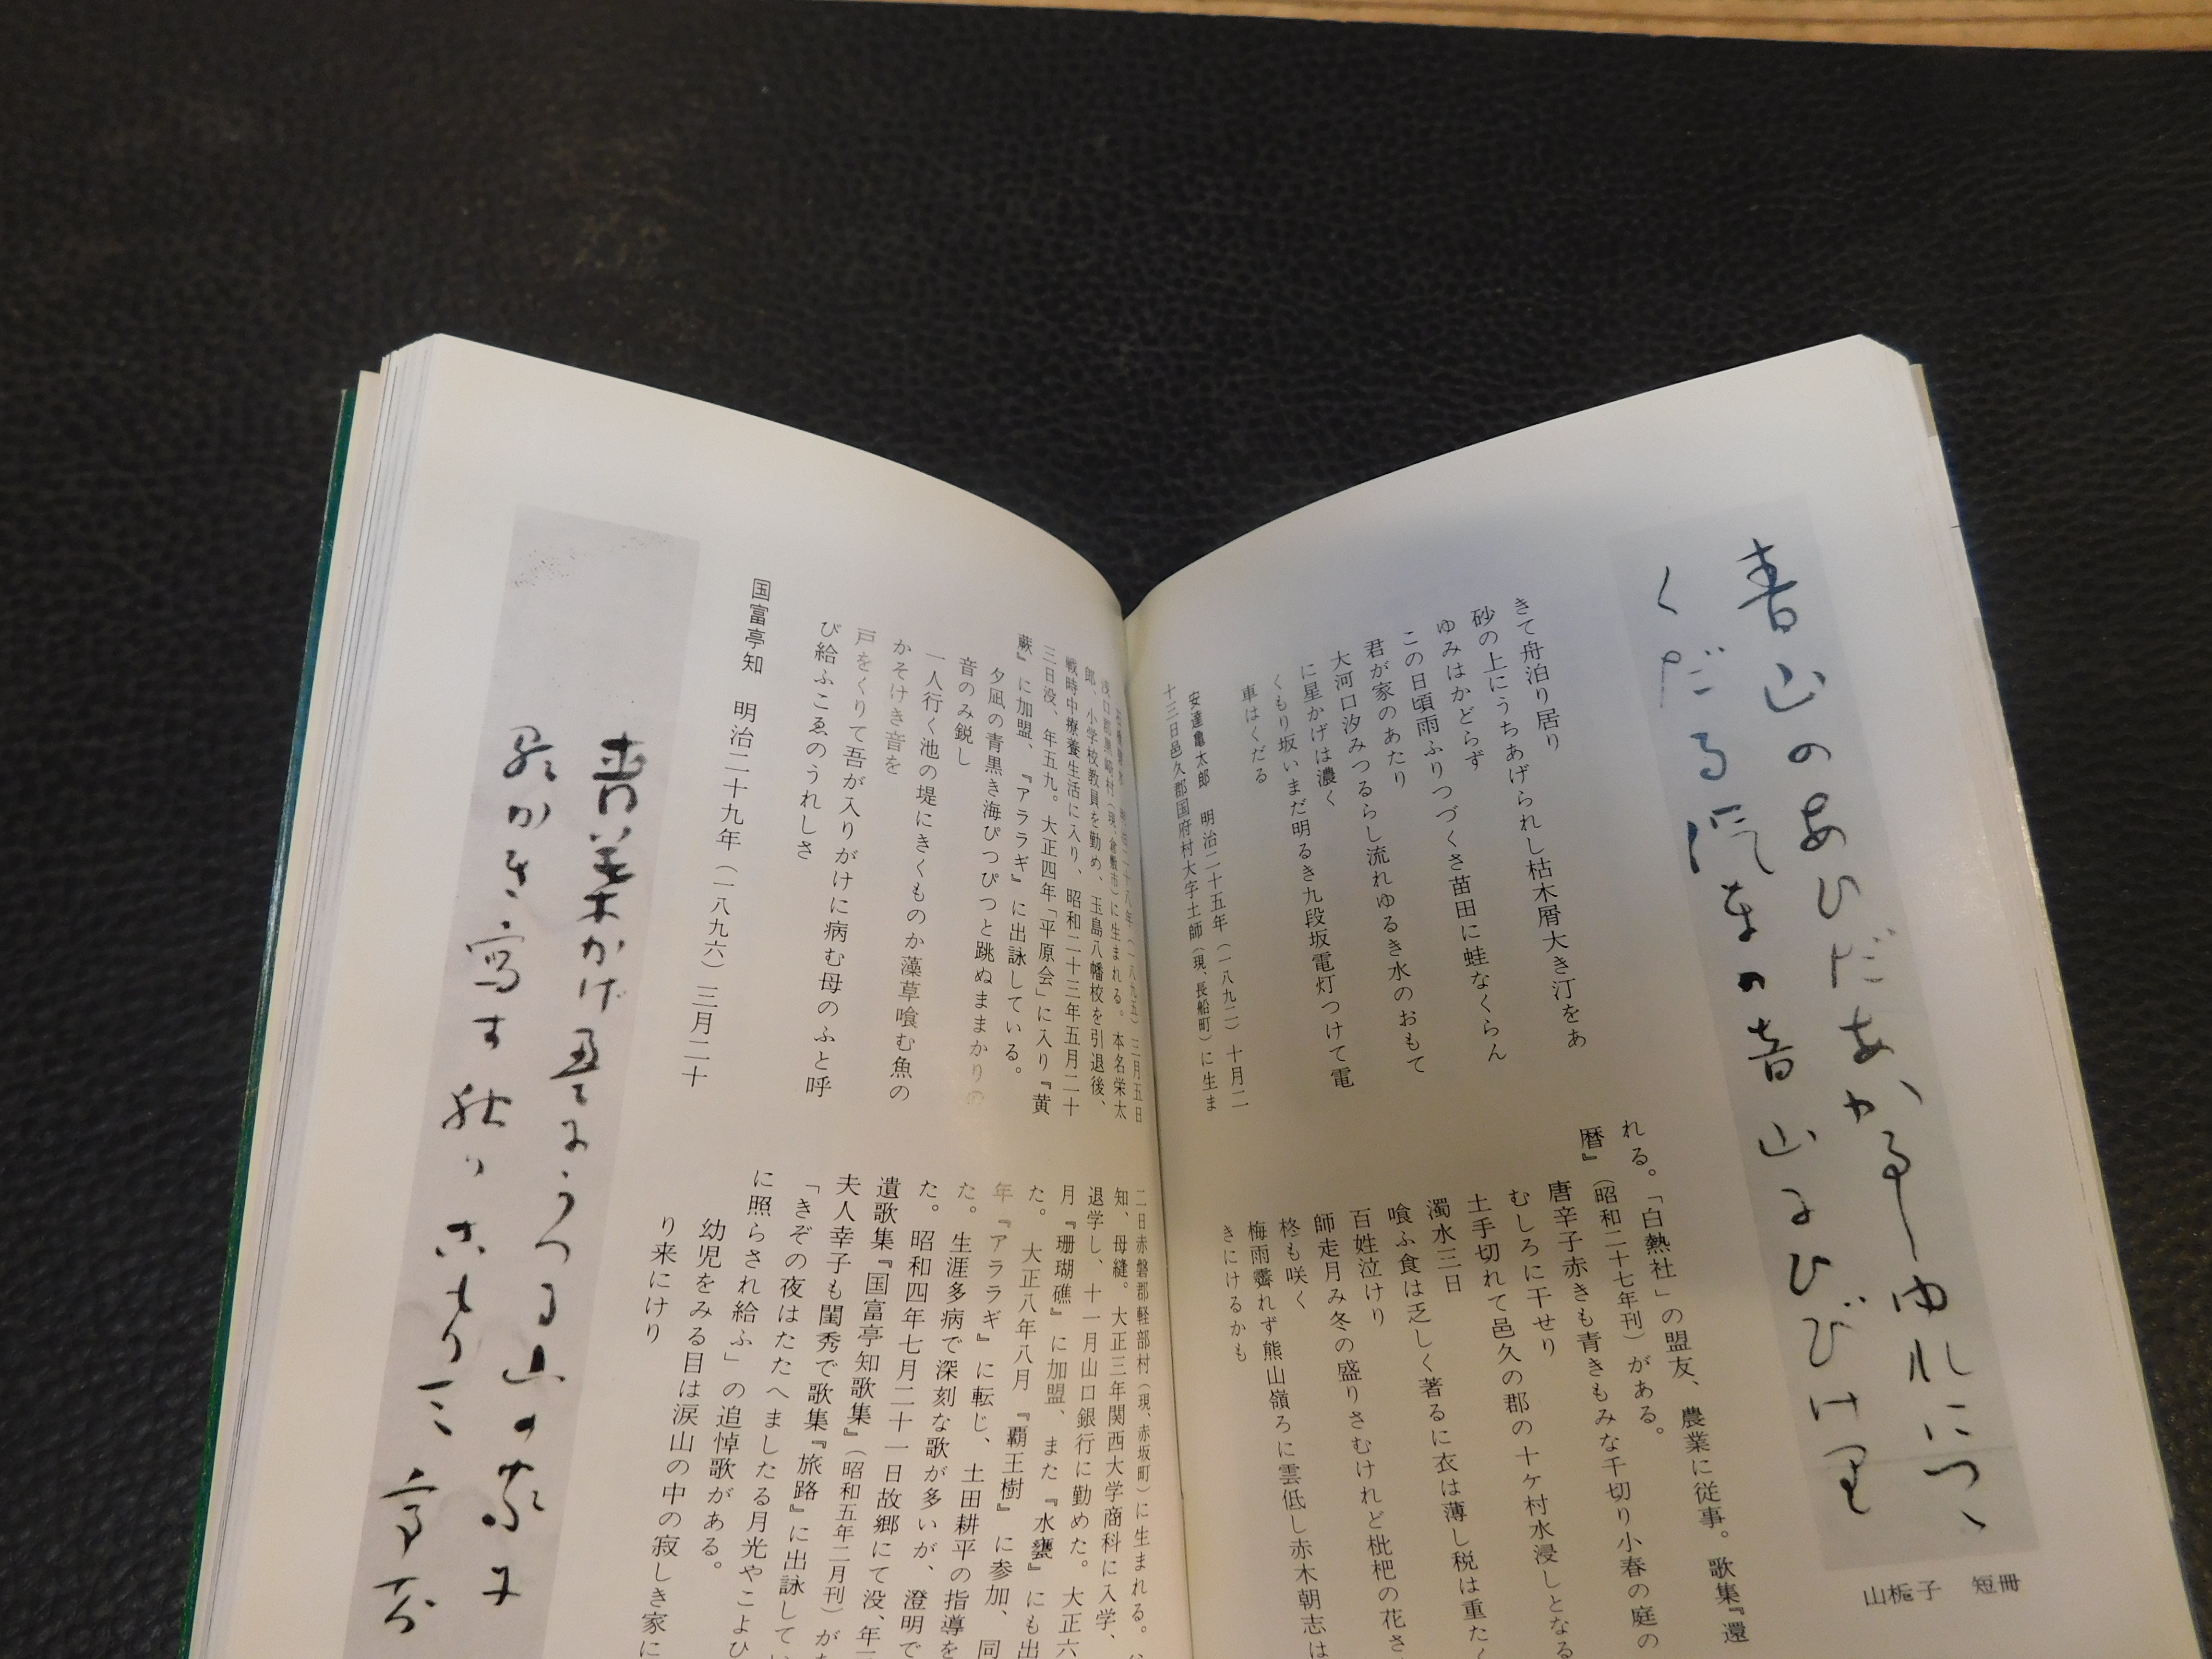 青山のあひだあかるしゆれにつゝ
くだる汽車の音山にひびけり
山梔子　短冊
きて舟泊り居り
砂の上にうちあげられし枯木屑大き汀をあ
ゆみはかどらず
この日頃雨ふりつづくさ苗田に蛙なくらん
君が家のあたり
大河口汐みつるらし流れゆるき水のおもて
に星かげは濃く
くもり坂いまだ明るき九段坂電灯つけて電
車はくだる
安達亀太郎　明治二十五年（一八九二）十月二
十三日邑久郡国府村大字土師（現、長船町）に生ま
れる。「白熱社」の盟友、農業に従事。歌集『還
暦』（昭和二十七年刊）がある。
唐辛子赤きも青きもみな千切り小春の庭の
むしろに干せり
土手切れて邑久の郡の十ケ村水浸しとなる
濁水三日
喰ふ食は乏しく著るに衣は薄し税は重たく
百姓泣けり
師走月み冬の盛りさむけれど枇杷の花さ
柊も咲く
梅雨霽れず熊山嶺ろに雲低し赤木朝志は
きにけるかも
明治二十八年（一八九五）三月五日
浅口郡黒崎村（現、倉敷市）に生まれる。本名栄太
郎、小学校教員を勤め、玉島八幡校を引退後、
戦時中療養生活に入り、昭和二十三年五月二十
三日没、年五九。大正四年「平原会」に入り『黄
蕨』に加盟、『アララギ』に出詠している。
夕凪の青黒き海ぴつぴつと跳ぬままかりの
音のみ鋭し
一人行く池の堤にきくものか藻草喰む魚の
かそけき音を
戸をくりて吾が入りがけに病む母のふと呼
び給ふこゑのうれしさ
国富亭知　明治二十九年（一八九六）三月二十
二日赤磐郡軽部村（現、赤坂町）に生まれる。
知、母縫。大正三年関西大学商科に入学、
退学し、十一月山口銀行に勤めた。大正六
月『珊瑚礁』に加盟、また『水甕』にも出
た。大正八年八月『覇王樹』に参加、同
年『アララギ』に転じ、土田耕平の指導を
た。生涯多病で深刻な歌が多いが、澄明で
た。昭和四年七月二十一日故郷にて没、年
遺歌集『国富亭知歌集』（昭和五年二月刊）が
夫人幸子も閨秀で歌集『旅路』に出詠して
「きぞの夜はたたへましたる月光やこよひ
に照らされ給ふ」の追悼歌がある。
幼児をみる目は涙山の中の寂しき家に
り来にけり